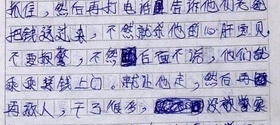 抓住，然后再打电话告诉他们老爸
把钱送过来，不然就杀他的心肝宝贝，
不要报警，不然后面不活，他们就
乖乖送钱上门，就让他走，然后再
西放人，干了很多，没被警察